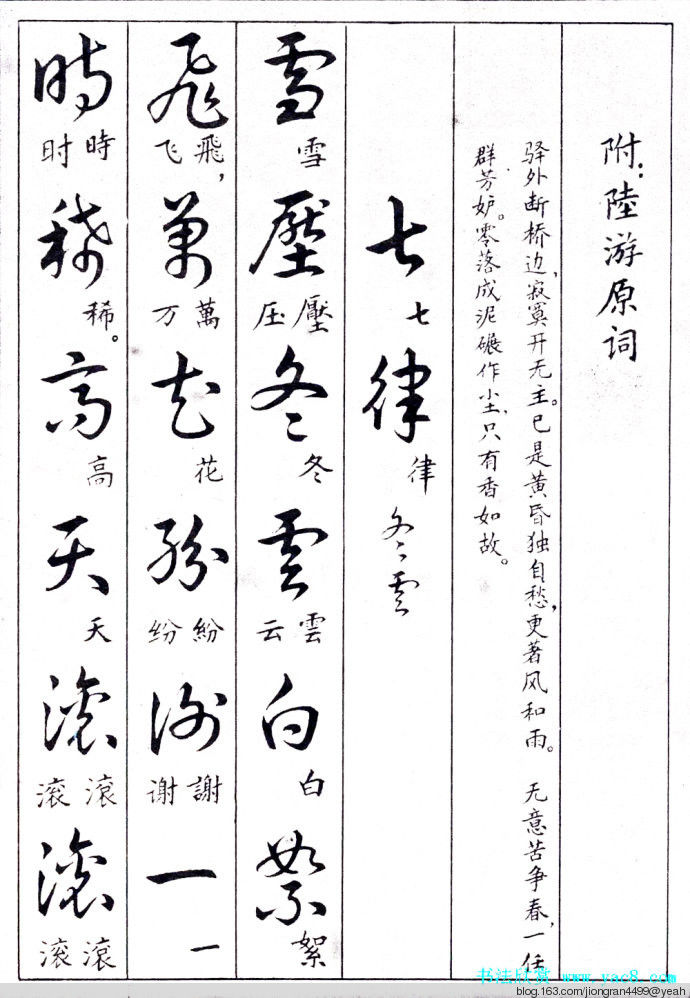 附:陸游原词
驿外断桥边,寂寞开无主。已是黄昏独自愁,更著风和雨。 无意苦争春,一任
群芳妒。零落成泥碾作尘,只有香如故。
七 七 律 律 冬雲
雪 雪 壓 壓 压 冬 冬 雲 雲 云 白 白 絮 絮
飛 飛, 飞 萬 萬 万 花 花 紛 紛 纷 謝 謝 谢 一 一
時 時 时 稀 稀。 高 高 天 天 滾 滾 滚 滾 滾 滚
书法欣赏 www.yac8.com
blog.163.com/jiongran4499@yeah